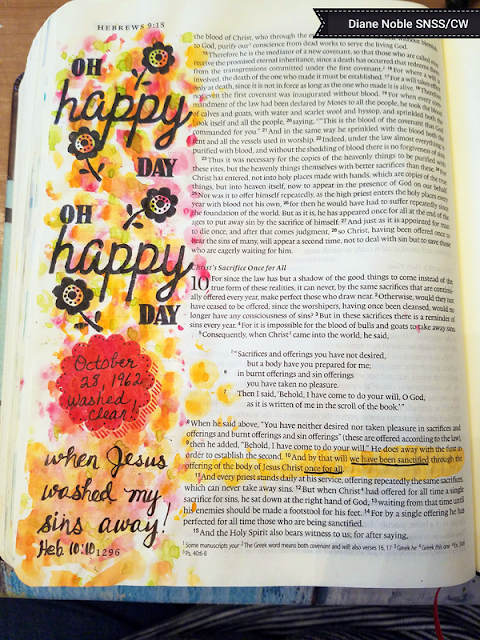 Diane Noble SNSS/CW
HEBREWS 9:15
OH
happy
DAY
OH
happy
DAY
October
28, 1962
washed
clear!
when Jesus
washed my
sins away!
Heb. 10:10
1296
the blood of Christ, who through the
to God, purify our conscience from dead works to serve the living God.
15 Therefore he is the mediator of a new covenant, so that those who are called may
receive the promised eternal inheritance, since a death has occurred that redeems them
from the transgressions committed under the first covenant. 16 For where a will is
involved, the death of the one who made it must be established. 17 For a will takes effect
only at death, since it is not in force as long as the one who made it is alive. 18 Therefore
not even the first covenant was inaugurated without blood. 19 For when every com-
mandment of the law had been declared by Moses to all the people, he took the blood
of calves and goats, with water and scarlet wool and hyssop, and sprinkled both the
book itself and all the people, 20 saying, “This is the blood of the covenant that God
commanded for you.” 21 And in the same way he sprinkled with the blood both the
tent and all the vessels used in worship. 22 Indeed, under the law almost everything is
purified with blood, and without the shedding of blood there is no forgiveness of sins.
23 Thus it was necessary for the copies of the heavenly things to be purified with
these rites, but the heavenly things themselves with better sacrifices than these. 24 For
Christ has entered, not into holy places made with hands, which are copies of the true
things, but into heaven itself, now to appear in the presence of God on our behalf.
25 Nor was it to offer himself repeatedly, as the high priest enters the holy places every
year with blood not his own, 26 for then he would have had to suffer repeatedly since
the foundation of the world. But as it is, he has appeared once for all at the end of the
ages to put away sin by the sacrifice of himself. 27 And just as it is appointed for man
to die once, and after that comes judgment, 28 so Christ, having been offered once to
bear the sins of many, will appear a second time, not to deal with sin but to save those
who are eagerly waiting for him.
Christ's Sacrifice Once for All
10 For since the law has but a shadow of the good things to come instead of the
true form of these realities, it can never, by the same sacrifices that are continu-
ally offered every year, make perfect those who draw near. 2 Otherwise, would they not
have ceased to be offered, since the worshipers, having once been cleansed, would no
longer have any consciousness of sins? 3 But in these sacrifices there is a reminder of
sins every year. 4 For it is impossible for the blood of bulls and goats to take away sins.
5 Consequently, when Christ came into the world, he said,
“Sacrifices and offerings you have not desired,
but a body have you prepared for me;
6 in burnt offerings and sin offerings
you have taken no pleasure.
7 Then I said, ‘Behold, I have come to do your will, O God,
as it is written of me in the scroll of the book.’”
8 When he said above, “You have neither desired nor taken pleasure in sacrifices and
offerings and burnt offerings and sin offerings” (these are offered according to the law),
9 then he added, “Behold, I have come to do your will.” He does away with the first in
order to establish the second. 10 And by that will we have been sanctified through the
offering of the body of Jesus Christ once for all.
11 And every priest stands daily at his service, offering repeatedly the same sacrifices,
which can never take away sins. 12 But when Christ had offered for all time a single
sacrifice for sins, he sat down at the right hand of God, 13 waiting from that time until
his enemies should be made a footstool for his feet. 14 For by a single offering he has
perfected for all time those who are being sanctified.
15 And the Holy Spirit also bears witness to us; for after saying,
1 Some manuscripts your 2 The Greek word means both covenant and will; also verses 16, 17 3 Greek he 4 Greek this one
Ps. 40:6-8